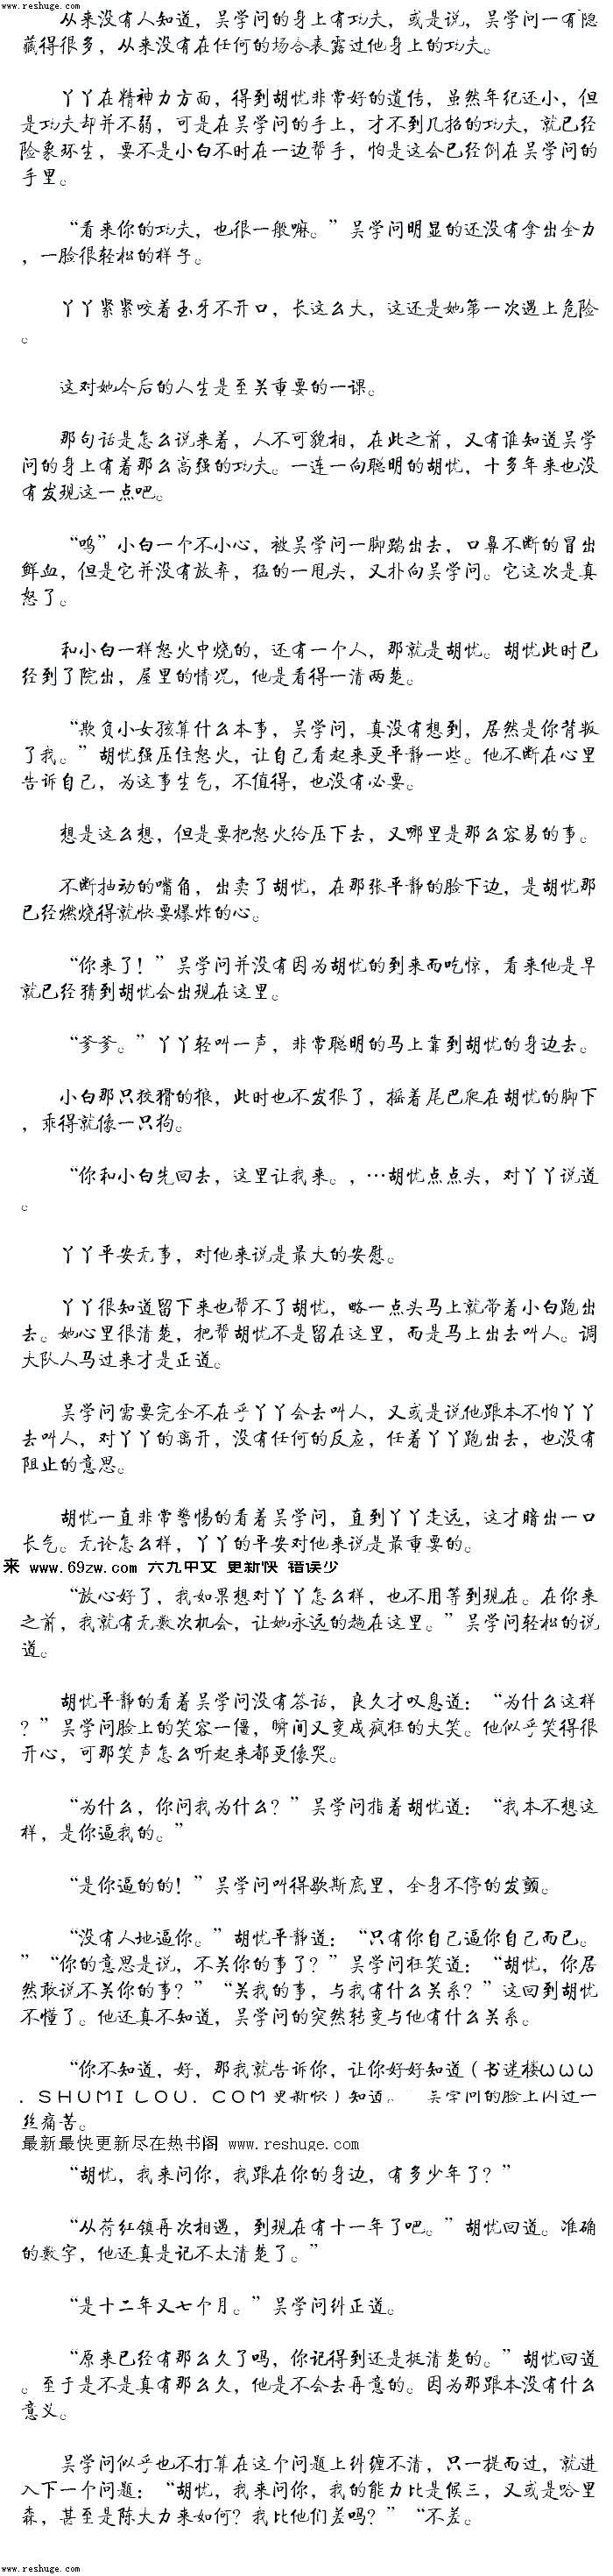 www.reshuge.com
从来没有人知道，吴学问的身上有功夫，或是说，吴学问一有隐
藏得很多，从来没有在任何的场合表露过他身上的功夫。
丫丫在精神力方面，得到胡忧非常好的遗传，虽然年纪还小，但
是功夫却并不弱，可是在吴学问的手上，才不到几招的功夫，就已经
险象环生，要不是小白不时在一边帮手，怕是这会已经倒在吴学问的
手里。
“看来你的功夫，也很一般嘛。”吴学问明显的还没有拿出全力
，一脸很轻松的样子。
丫丫紧紧咬着玉牙不开口，长这么大，这还是她第一次遇上危险
。
这对她今后的人生是至关重要的一课。
那句话是怎么说来着，人不可貌相，在此之前，又有谁知道吴学
问的身上有着那么高强的功夫。一连一向聪明的胡忧，十多年来也没
有发现这一点吧。
“呜”小白一个不小心，被吴学问一脚踹出去，口鼻不断的冒出
鲜血，但是它并没有放弃，猛的一甩头，又扑向吴学问。它这次是真
怒了。
和小白一样怒火中烧的，还有一个人，那就是胡忧。胡忧此时已
经到了院出，屋里的情况，他是看得一清两楚。
“欺负小女孩算什么本事，吴学问，真没有想到，居然是你背叛
了我。”胡忧强压住怒火，让自己看起来更平静一些。他不断在心里
告诉自己，为这事生气，不值得，也没有必要。
想是这么想，但是要把怒火给压下去，又哪里是那么容易的事。
不断抽动的嘴角，出卖了胡忧，在那张平静的脸下边，是胡忧那
已经燃烧得就快要爆炸的心。
“你来了！”吴学问并没有因为胡忧的到来而吃惊，看来他是早
就已经猜到胡忧会出现在这里。
“爹爹。”丫丫轻叫一声，非常聪明的马上靠到胡忧的身边去。
小白那只狡猾的狼，此时也不发狠了，摇着尾巴爬在胡忧的脚下
，乖得就像一只狗。
“你和小白先回去，这里让我来。，…胡忧点点头，对丫丫说道
。
丫丫平安无事，对他来说是最大的安慰。
丫丫很知道留下来也帮不了胡忧，略一点头马上就带着小白跑出
去。她心里很清楚，把帮胡忧不是留在这里，而是马上出去叫人。调
大队人马过来才是正道。
吴学问需要完全不在乎丫丫会去叫人，又或是说他跟本不怕丫丫
去叫人，对丫丫的离开，没有任何的反应，任着丫丫跑出去，也没有
阻止的意思。
胡忧一直非常警惕的看着吴学问，直到丫丫走远，这才暗出一口
长气。无论怎么样，丫丫的平安对他来说是最重要的。
来 www.69zw.com 六九中文 更新快 错误少
“放心好了，我如果想对丫丫怎么样，也不用等到现在。在你来
之前，我就有无数次机会，让她永远的趟在这里。”吴学问轻松的说
道。
胡忧平静的看着吴学问没有答话，良久才叹息道：“为什么这样
？”吴学问脸上的笑容一僵，瞬间又变成疯狂的大笑。他似乎笑得很
开心，可那笑声怎么听起来都更像哭。
“为什么，你问我为什么？”吴学问指着胡忧道：“我本不想这
样，是你逼我的。”
“是你逼的的！”吴学问叫得歇斯底里，全身不停的发颤。
“没有人地逼你。”胡忧平静道：“只有你自己逼你自己而已。
”“你的意思是说，不关你的事了？”吴学问狂笑道：“胡忧，你居
然敢说不关你的事？”“关我的事，与我有什么关系？”这回到胡忧
不懂了。他还真不知道，吴学问的突然转变与他有什么关系。
“你不知道，好，那我就告诉你，让你好好知道（书迷楼ＷＷＷ
．ＳＨＵＭＩＬＯＵ．ＣＯＭ更新快）知道。”吴学问的脸上闪过一
丝痛苦。
最新最快更新尽在热书阁 www.reshuge.com
“胡忧，我来问你，我跟在你的身边，有多少年了？”
“从荷红镇再次相遇，到现在有十一年了吧。”胡忧回道。准确
的数字，他还真是记不太清楚了。”
“是十二年又七个月。”吴学问纠正道。
“原来已经有那么久了吗，你记得到还是挺清楚的。”胡忧回道
。至于是不是真有那么久，他是不会去再意的。因为那跟本没有什么
意义。
吴学问似乎也不打算在这个问题上纠缠不清，只一提而过，就进
入下一个问题：“胡忧，我来问你，我的能力比是候三，又或是哈里
森，甚至是陈大力来如何？我比他们差吗？”“不差。
www.reshuge.com